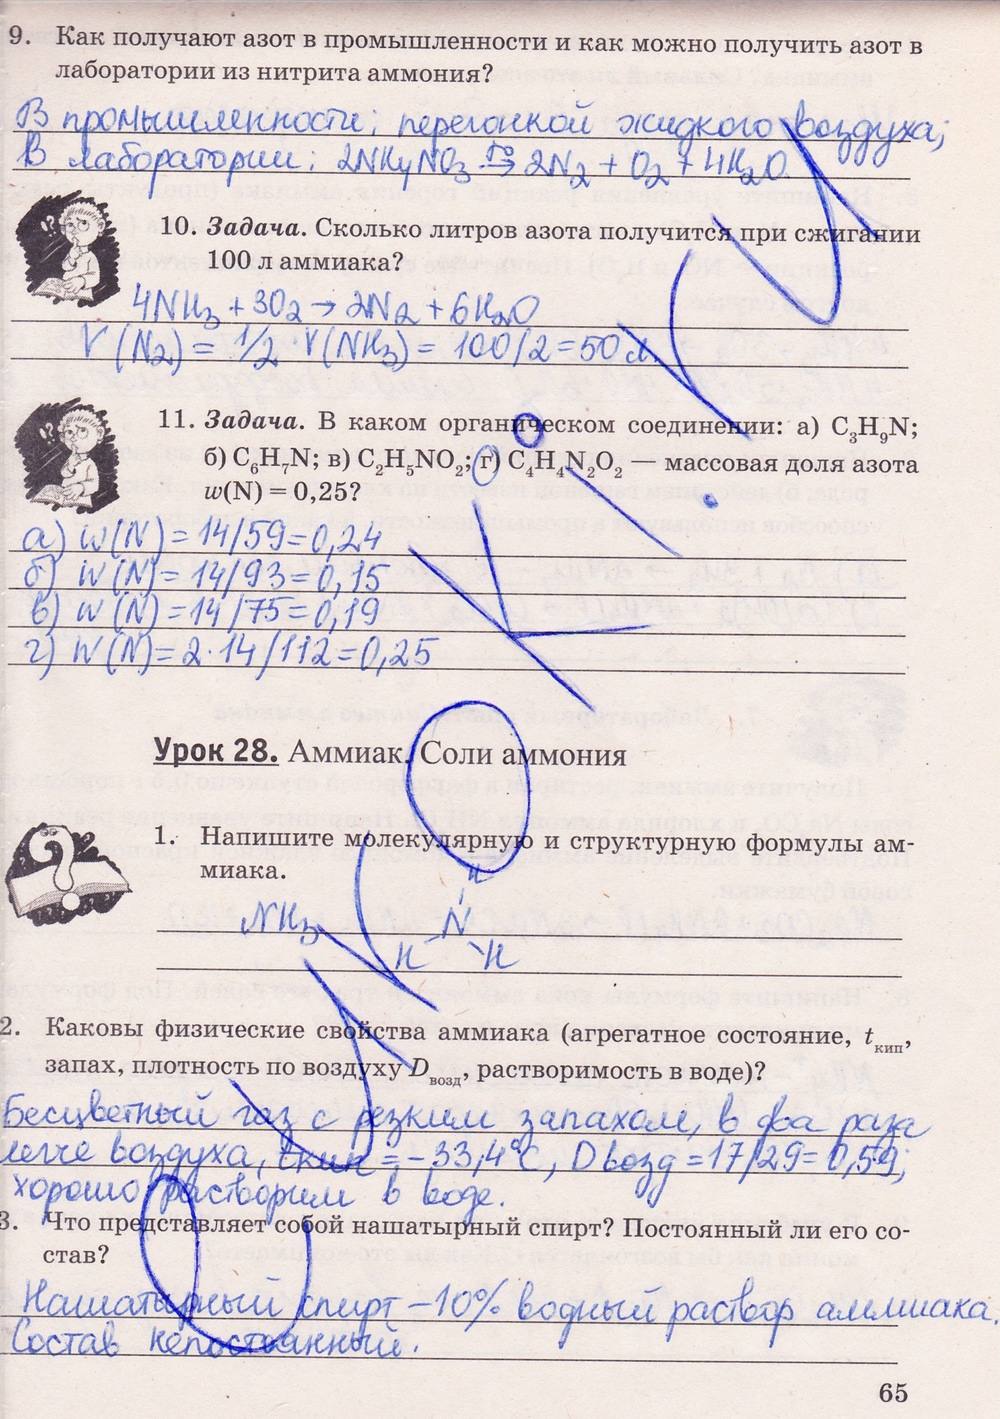 9. Как получают азот в промышленности и как можно получить азот в
лаборатории из нитрита аммония?
В промышленности: перегонкой жидкого воздуха;
В лаборатории: 2NH4NO3 t°→ 2N2 + O2 + 4H2O
10. Задача. Сколько литров азота получится при сжигании
100 л аммиака?
4NH3 + 3O2 → 2N2 + 6H2O
V(N2) = 1/2 · V(NH3) = 100/2 = 50 л.
11. Задача. В каком органическом соединении: а) C3H9N;
б) C6H7N; в) C2H5NO2; г) C4H4N2O2 — массовая доля азота
w(N) = 0,25?
а) w(N) = 14/59 = 0,24
б) w(N) = 14/93 = 0,15
в) w(N) = 14/75 = 0,19
г) w(N) = 2·14/112 = 0,25
Урок 28. Аммиак. Соли аммония
1. Напишите молекулярную и структурную формулы ам-
миака.
H
NH3 N
H H
2. Каковы физические свойства аммиака (агрегатное состояние, tкип,
запах, плотность по воздуху Dвозд, растворимость в воде)?
Бесцветный газ с резким запахом, в два раза
легче воздуха, tкип = -33,4°C, Dвозд = 17/29 = 0,59;
хорошо растворим в воде.
3. Что представляет собой нашатырный спирт? Постоянный ли его со-
став?
Нашатырный спирт – 10% водный раствор аммиака.
Состав непостоянный.
65